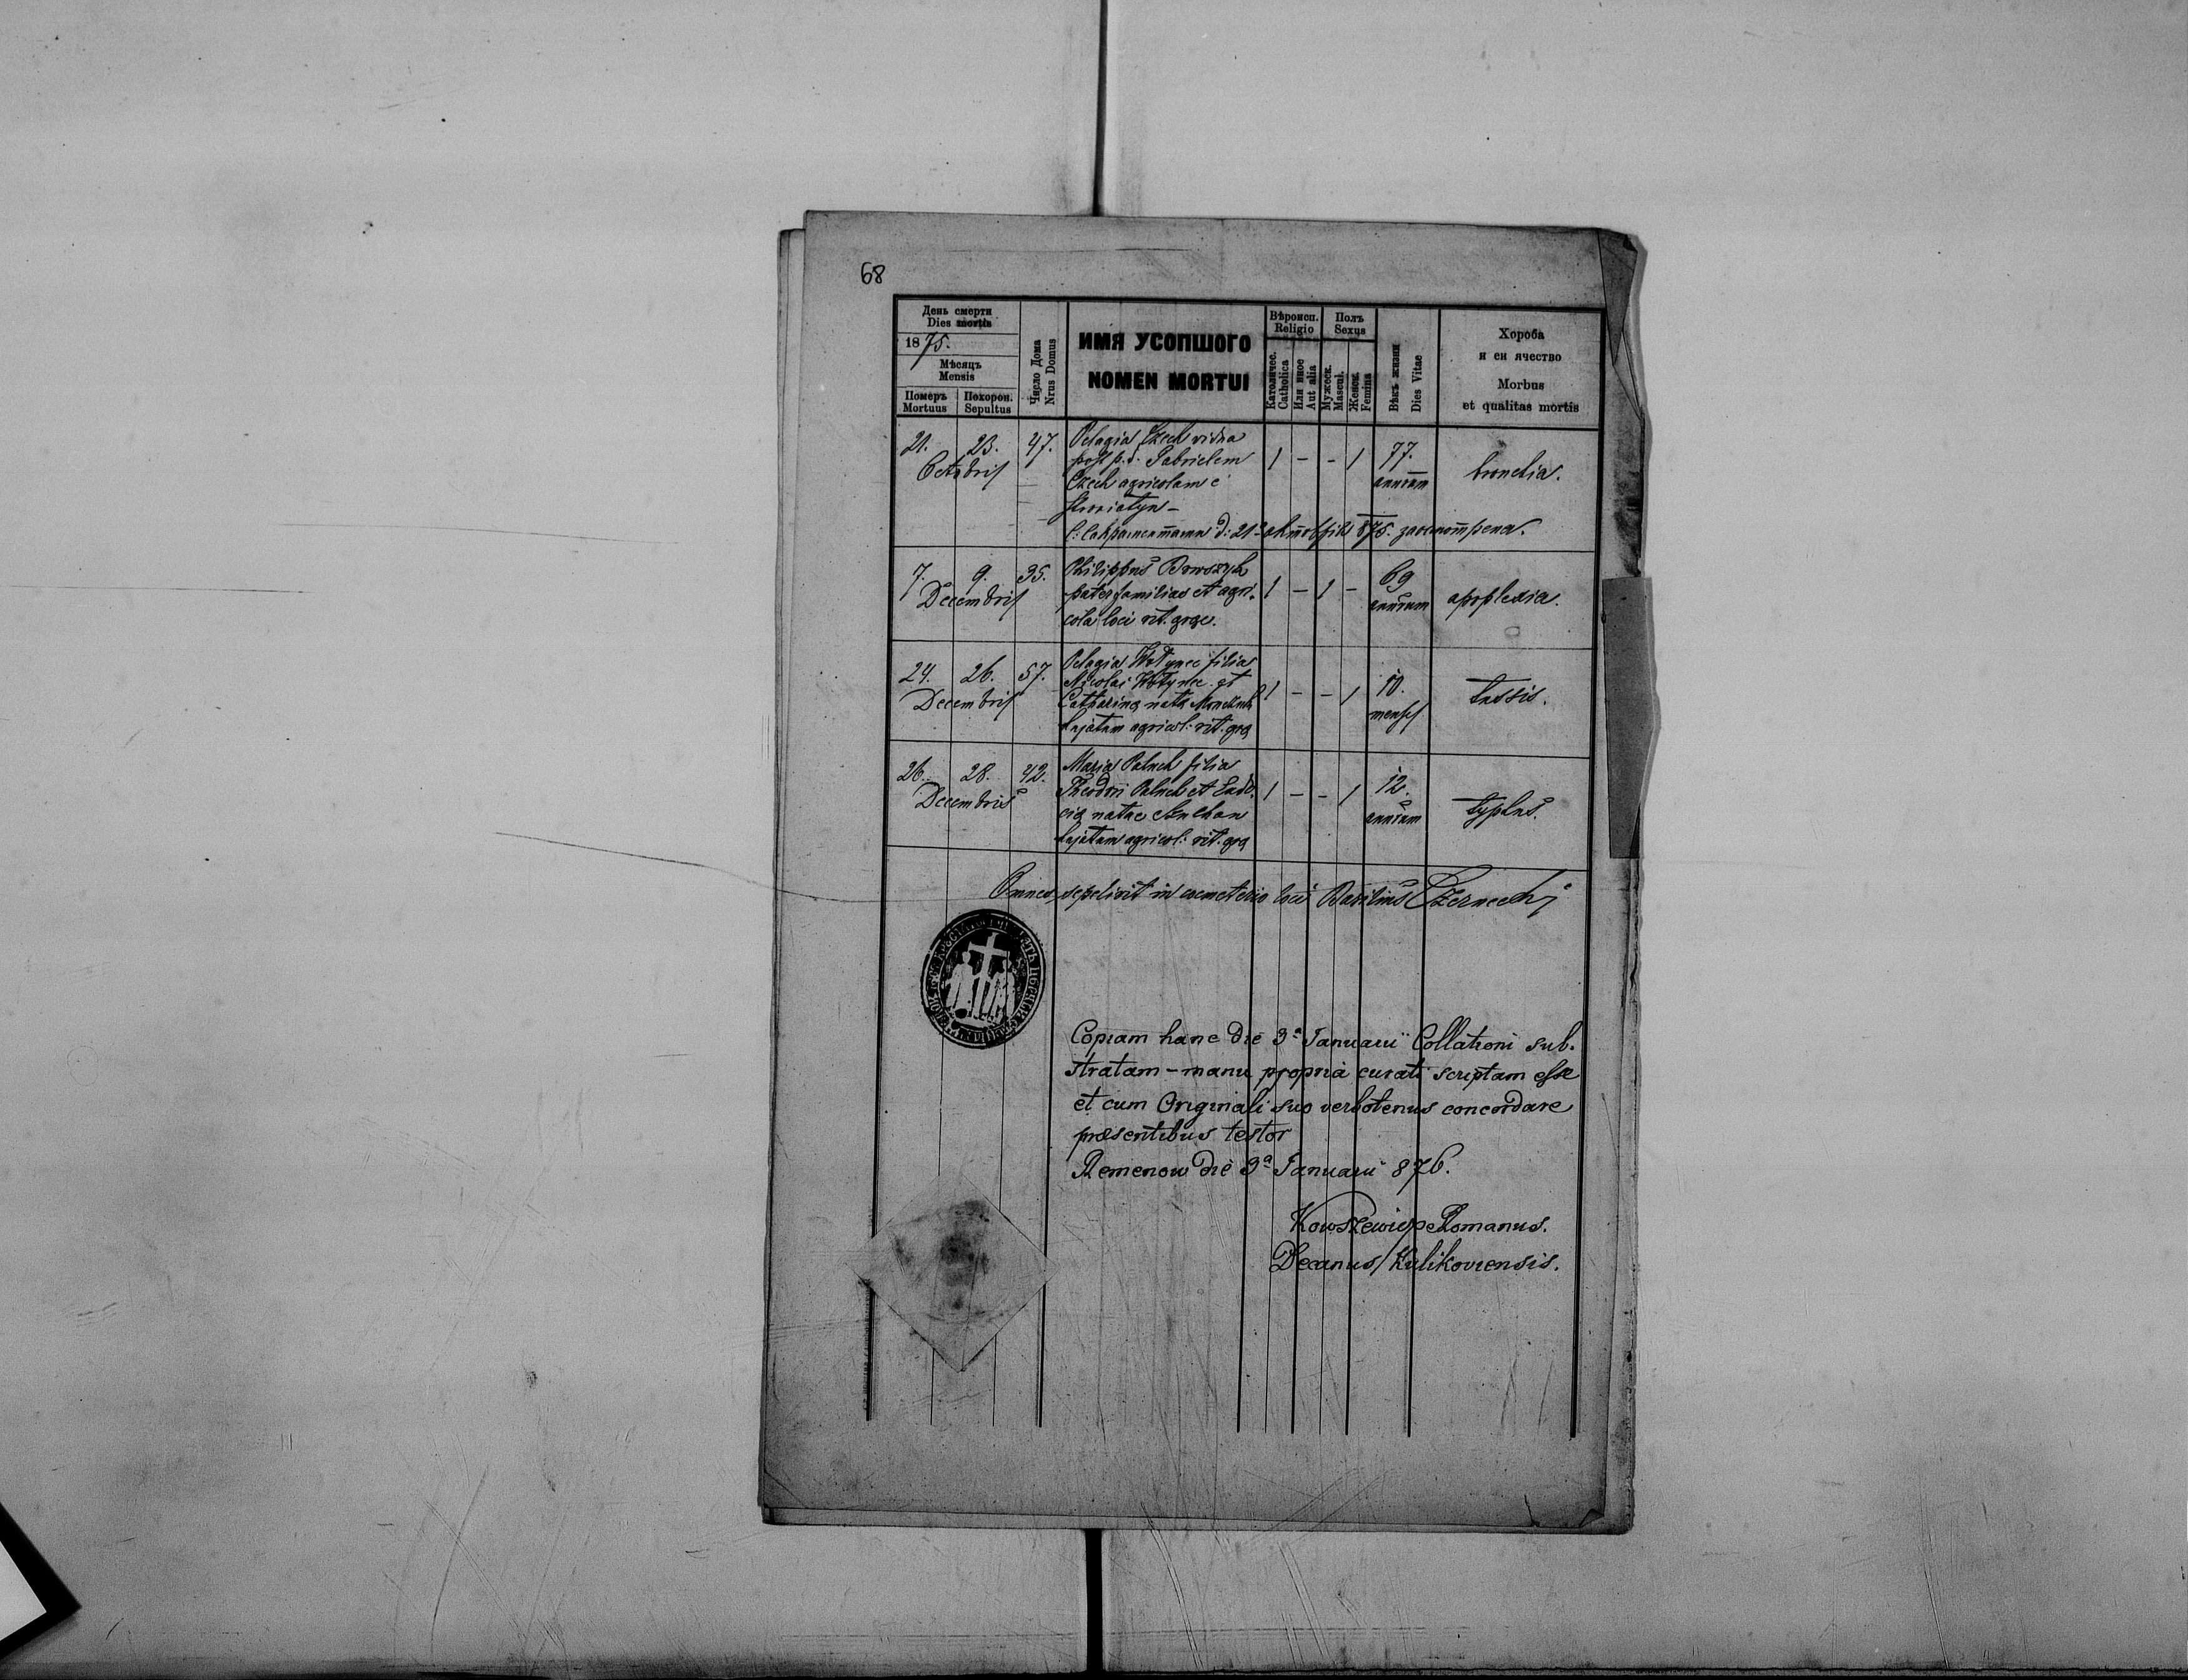 68
День смерти
Dies mortis
1875.
Мѣсяцъ
Mensis
Померъ Похорон.
Mortuus Sepultus
Число Дома
Nrus Domus
ИМЯ УСОПШОГО
NOMEN MORTUI
Вѣроисп.
Religio
Католичес.
Catholica
Или иное
Aut alia
Полъ
Sexus
Мужеск.
Mascul.
Женск.
Femina
Вѣкъ жизни
Dies Vitae
Хороба
и еи ячество
Morbus
et qualitas mortis
21. 23. 47. Pelagia Czech vidua 1 - - 1 77. bronchia.
Octobris post p. d. Gabrielem annorum
Czech agricolam e
d: 21 875.
7. 9. 35. Philippus 1 - 1 - 69 apoplexia.
Decembris pater familias et agri- annorum
cola loci rit. grae.
24. 26. 57. Pelagia filia 1 - - 1 10. tussis.
Decembris Nicolai et menses
Catharina nata
hujatum agricol: rit. gra
26. 28. 42. Maria Paluch filia 1 - - 1 12. typhus.
Decembris Theodori Paluch et Eudo- annorum
cia natae
hujatum agricol: rit. gra
Omnes sepelivit in coemeterio loci Basilius Czernecki
Copiam hanc die 3ª Januarii Collationi sub-
stratam - manu propria curati scriptam esse
et cum Originali suo verbotenus concordare
praesentibus testor
Remenow die 3ª Januarii 876.
Romanus.
Decanus Kulikoviensis.